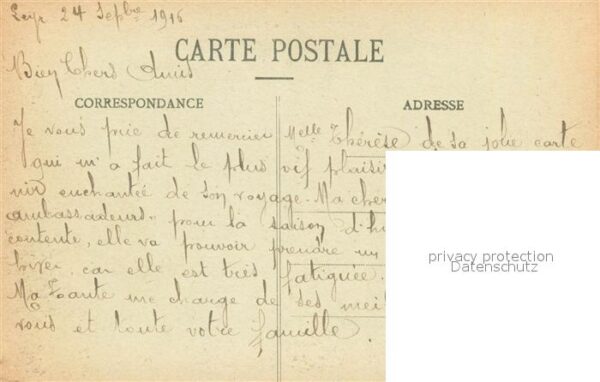 24 Sepbre 1916
CARTE POSTALE
Bien Chers Amis
CORRESPONDANCE
ADRESSE
Je vous prie de remercier Melle Thérèse de sa jolie carte
qui m'a fait le plus vif plaisir
enchantée de son voyage. Ma
ambassadeurs pour la saison d'hi
contente, elle va pouvoir prendre un
hiver, car elle est très fatiguée.
Ma Tante me charge de ses meil
vous et toute votre famille.
privacy protection
Datenschutz